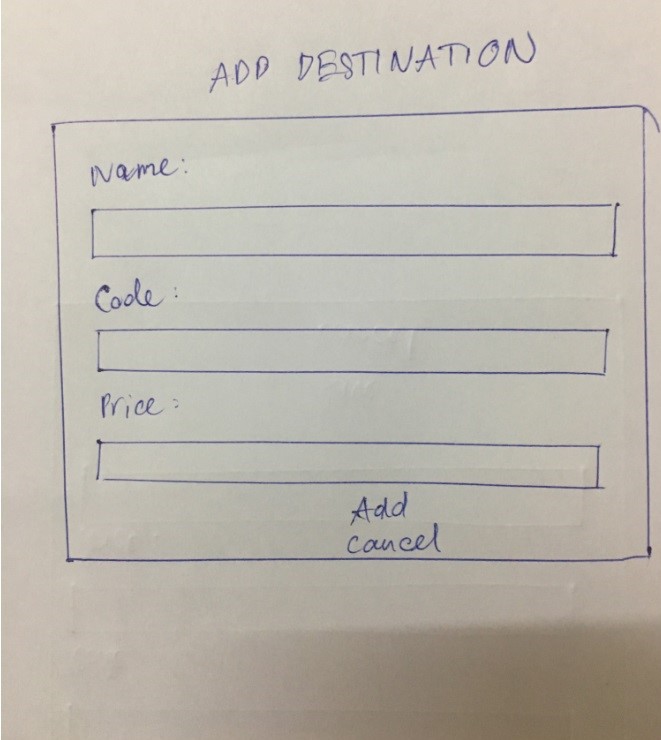 ADD DESTINATION
Name:
Code:
Price:
Add
cancel